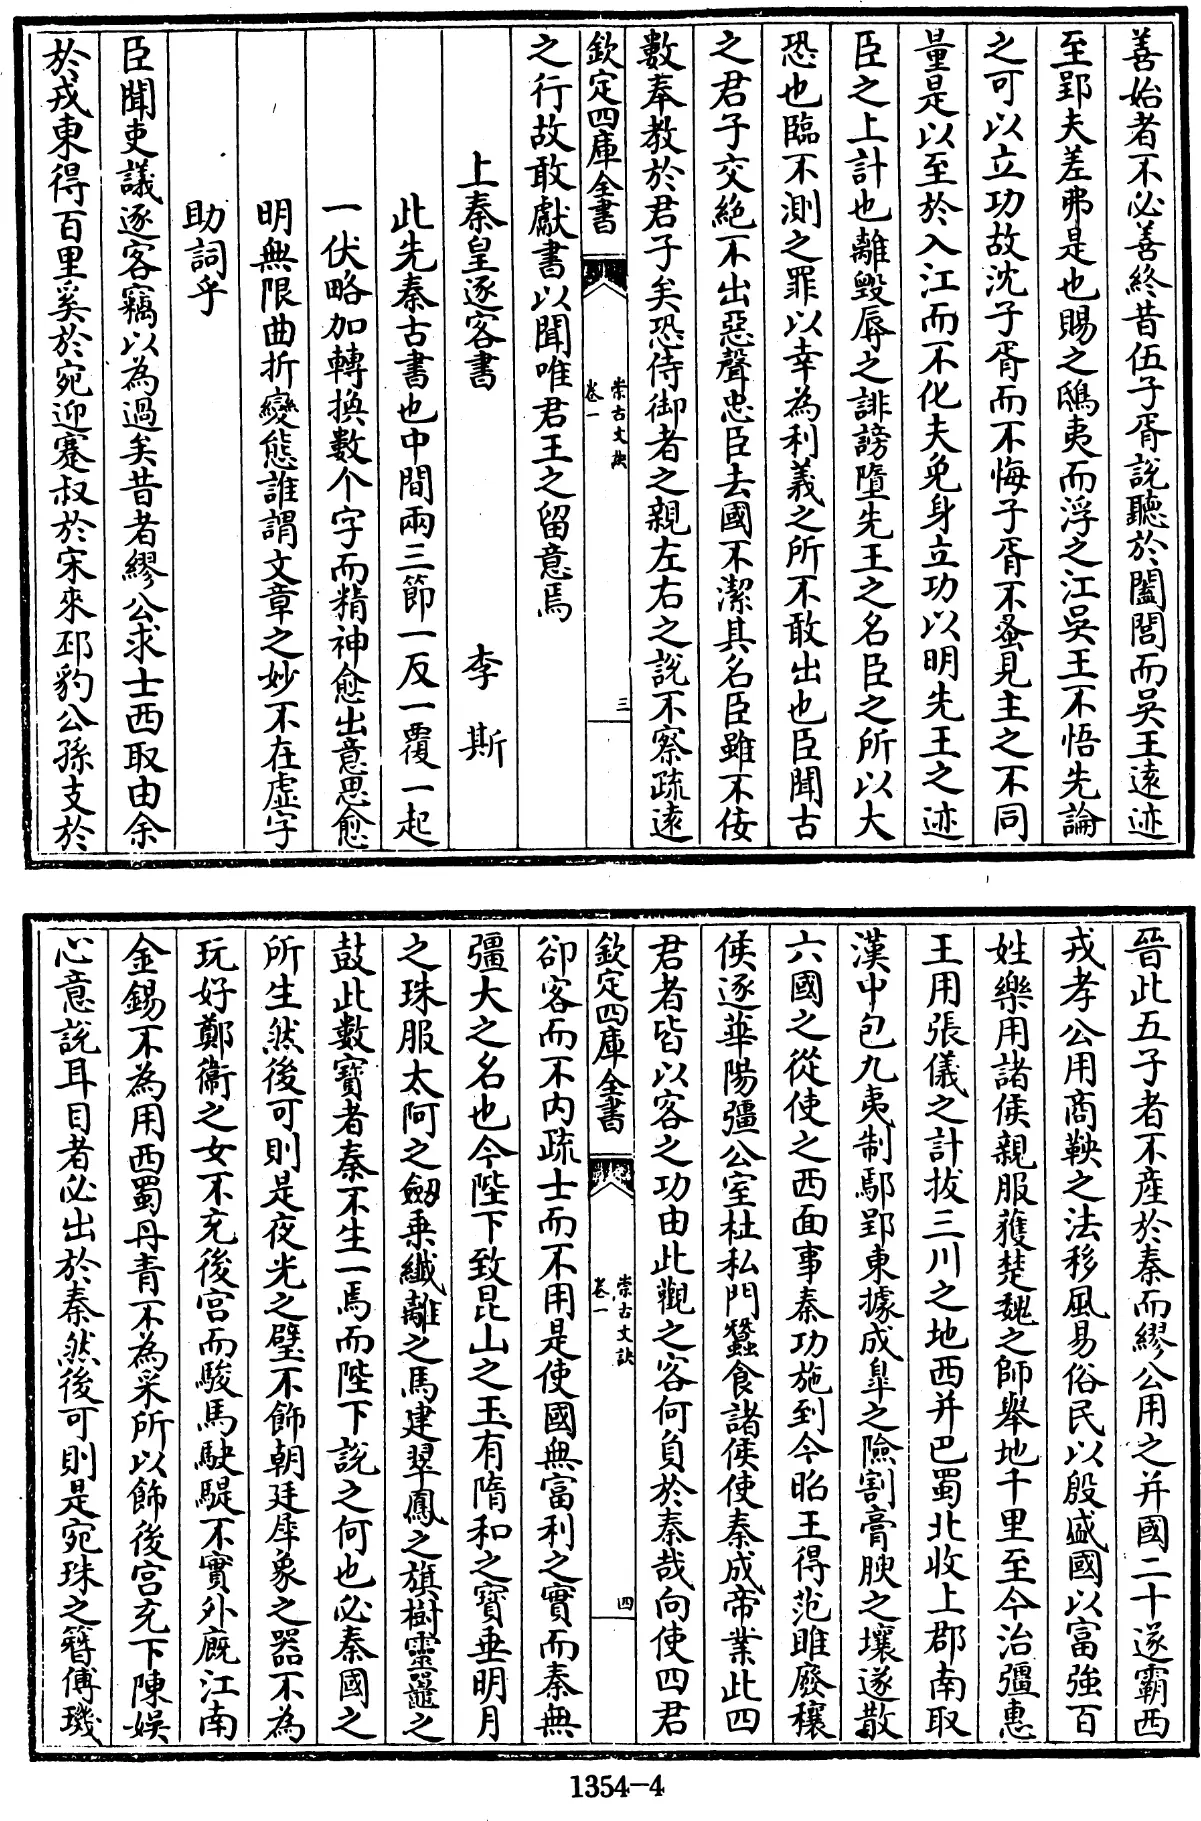 善始者不必善終昔伍子胥說聽於闔閭而吳王遠迹
至郢夫差弗是也賜之鴟夷而浮之江吳王不悟先論
之可以立功故沈子胥而不悔子胥不蚤見主之不同
量是以至於入江而不化夫免身立功以明先王之迹
臣之上計也離毀辱之誹謗墮先王之名臣之所以大
恐也臨不測之罪以幸為利義之所不敢出也臣聞古
之君子交絶不出惡聲忠臣去國不潔其名臣雖不佞
數奉教於君子矣恐侍御者之親左右之說不察疏遠
欽定四庫全書
崇古文訣
卷一
三
之行故敢獻書以聞唯君王之留意焉
上秦皇逐客書 李斯
此先秦古書也中間兩三節一反一覆一起
一伏略加轉換數个字而精神愈出意思愈
明無限曲折變態誰謂文章之妙不在虛字
助詞乎
臣聞吏議逐客竊以為過矣昔者繆公求士西取由余
於戎東得百里奚於宛迎蹇叔於宋來邳豹公孫支於
晉此五子者不産於秦而繆公用之并國二十遂霸西
戎孝公用商鞅之法移風易俗民以殷盛國以富強百
姓樂用諸侯親服獲楚魏之師舉地千里至今治彊惠
王用張儀之計拔三川之地西并巴蜀北收上郡南取
漢中包九夷制鄢郢東據成皐之險割膏腴之壤遂散
六國之從使之西面事秦功施到今昭王得范雎廢穰
侯逐華陽彊公室杜私門蠶食諸侯使秦成帝業此四
君者皆以客之功由此觀之客何負於秦哉向使四君
欽定四庫全書
崇古文訣
卷一
四
卻客而不内疏士而不用是使國無富利之實而秦無
彊大之名也今陛下致昆山之玉有隋和之寶垂明月
之珠服太阿之劒乘纖離之馬建翠鳳之旗樹靈鼉之
鼓此數寶者秦不生一焉而陛下說之何也必秦國之
所生然後可則是夜光之璧不飾朝廷犀象之器不為
玩好鄭衞之女不充後宮而駿馬駃騠不實外廐江南
金錫不為用西蜀丹青不為采所以飾後宮充下陳娛
心意說耳目者必出於秦然後可則是宛珠之簪傅璣
1354-4